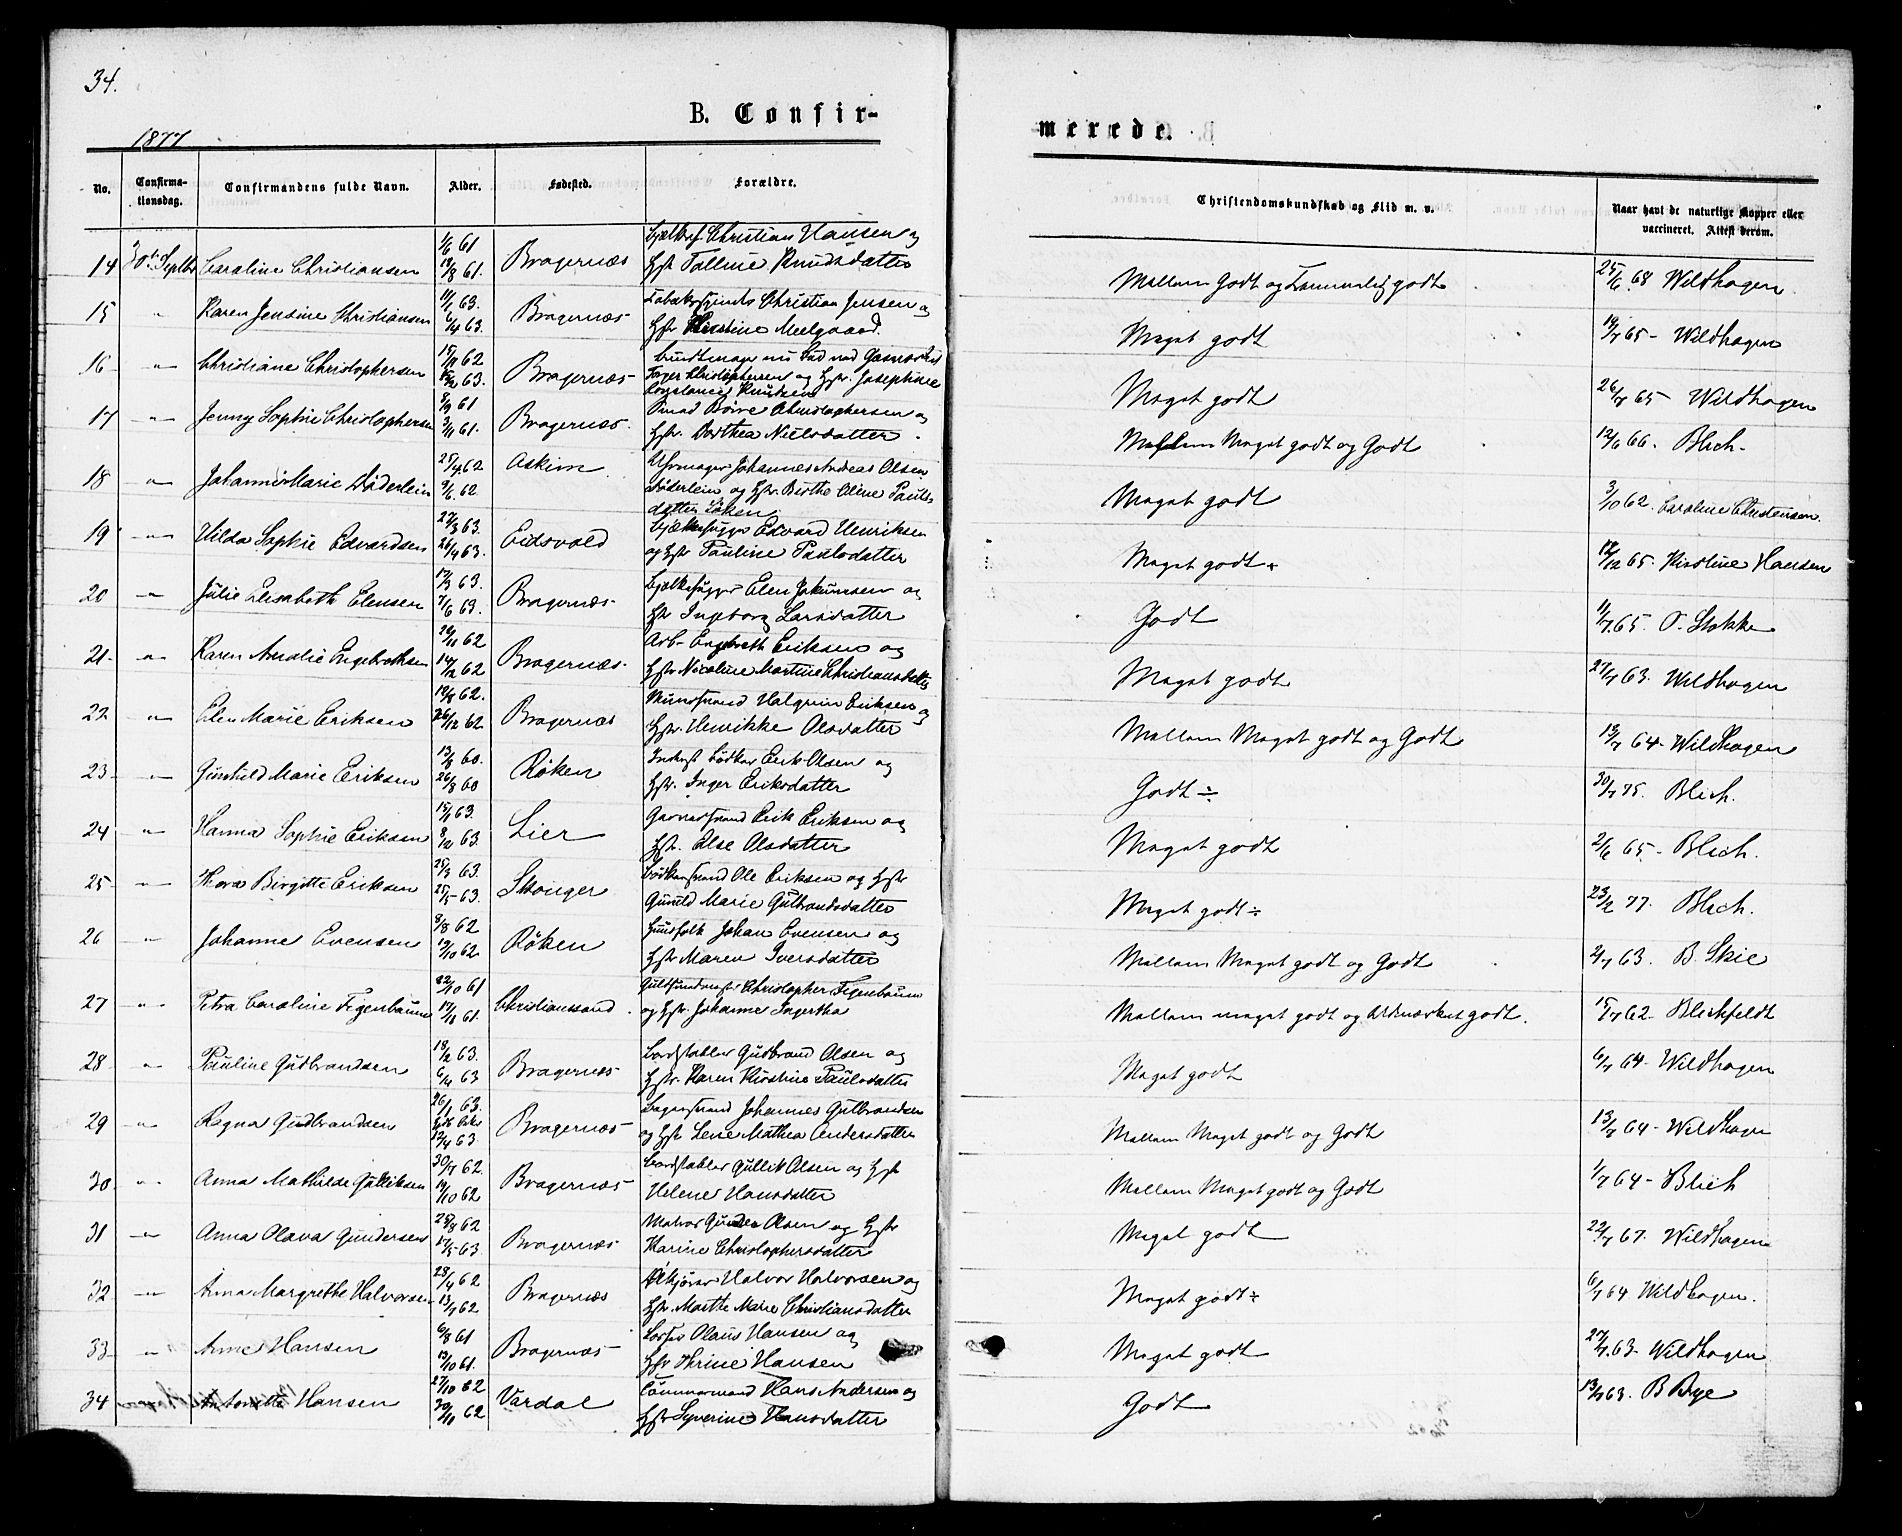 34.
B. Confir-
merede.
1877
No. Confirma-tionsdag. Confirmandens fulde Navn. Alder. Fødested. Forældre. Christendomskundskab og Flid m. v. Naar havt de naturlige Kopper eller vaccineret. Attest derom.
Christian Hansen og
14 30te Septbr Caroline Christiansen 1/6 61 19/8 61. Bragernæs Hstr Talline Knudsdatter Mellem Godt og Temmelig godt 25/6 68 Wildhagen.
Christian Jensen og
15 " Karen Jensine Christiansen 6/4 63. Bragernæs Hstr Christine Meelgaard. Meget godt 19/7 65 - Wildhagen
16 " Christiane Christophersen 62 63. Bragernæs Christophersen og Hstr. Josephine Constance Knudsen Meget godt 26/7 65 - Wildhagen
Christophersen og
17 " Jenny Sophie Christophersen 8/9 61 3/11 61. Bragernæs Hstr. Dorthea Nielsdatter. Mellem Meget godt og Godt 12/6 66. Blich.
Uhrmager Johannes Andreas Olsen
18 " Johanne Marie Döderlein 27/4 62 9/6 62. Askim Döderlein og Hstr. Berthe Oline Pauls-
datter Løken Meget godt 3/10 62. Caroline Christensen.
Edvard Henriksen
19 " Hilda Sophie Edvardsen 27/3 63. 26/4 63. Eidsvold og Hstr Pauline Paulsdatter Meget godt 12/12 65. Kirstine Hansen
20 " Julie Elisabeth Elensen 17/3 63. 7/6 63. Bragernæs Hstr Ingeborg Larsdatter Godt 11/7 65. O. Stokke
Arb. Engebreth Eriksen og
21 " Karen Amalie Engebrethsen 62 14/12 62 Bragernæs. Hstr Nicoline Martine Christiansdatter Meget godt 27/7 63. Wildhagen
Halgrim Eriksen og
22 " Elen Marie Eriksen 19/8 62. 26/12 62 Bragernæs Hstr. Henrikke Olsdatter Mellem Meget godt og Godt 13/7 64 - Wildhagen
Erik Olsen og
23 " Gunhild Marie Eriksen 60. 26/8 60 Røken Hstr. Inger Eriksdatter Godt ÷ 30/7 75. Blich.
Erik Eriksen og
24 " Hanna Sophie Eriksen 15/1 63. 8/2 63. Lier Hst. Else Olsdatter Meget godt 2/6 65 - Blich.
Ole Eriksen og Hstr
25 " Thora Birgitte Eriksen 25/3 63. 25/5 63. Skouger Gunild Marie Gulbrandsdatter Meget godt ÷ 23/2 77. Blich.
Huusfolk Johan Evensen og
26 " Johanne Evensen 8/8 62 19/10 62 Røken Hstr Maren Iversdatter Mellem Meget godt og Godt 2/7 63. B. Skie
Christopher Figenbaum
27 " Petra Caroline Figenbaum 22/10 61 61. Christianssand. og Hstr. Johanne Ingertha Mellem meget godt og Udmærket godt. 15/7 62 - Blichfeldt
Bordstabler Gudbrand Olsen og
28 " Pauline Gudbrandsen 18/2 63. 6/4 63 Bragernæs Hstr. Karen Kirstine Paulsdatter Meget godt 6/7 64 - Wildhagen
Johannes Gulbrandsen
29 " Ragna Gudbrandsen 26/1 63. 12/4 63. Bragernæs og Hstr Lene Mathea Andersdatter Mellem Meget godt og Godt 13/7 64 - Wildhagen
Bordstabler Gullik Olsen og Hstr
30 " Anna Mathilde Gulliksen 30/7 62. 19/10 62 Bragernæs Helene Hansdatter Mellem Meget godt og Godt 1/7 64 - Blich
Matros Gunder Olsen og Hstr
31 " Anna Olava Gundersen 28/8 62 17/5 63. Bragernæs Karine Christophersdatter Meget godt 22/7 67. Wildhagen
Halvor Halvorsen og
32 " Anna Margrethe Halvorsen 28/4 62 13/7 62 Bragernæs Hstr. Marthe Marie Christiansdatter Meget godt ÷ 6/7 64 Wildhagen.
Olaus Hansen og
33 " Anne Hansen 6/8 61 13/10 61. Bragernæs Hstr Thrine Hansen Meget godt 27/7 63 - Wildhagen
Tømmermand Hans Andersen og
34 Antonette Hansen 27/10 62 30/11 62 Vardal Hstr Syverine Hansdatter Godt 13/7 63. B Bye